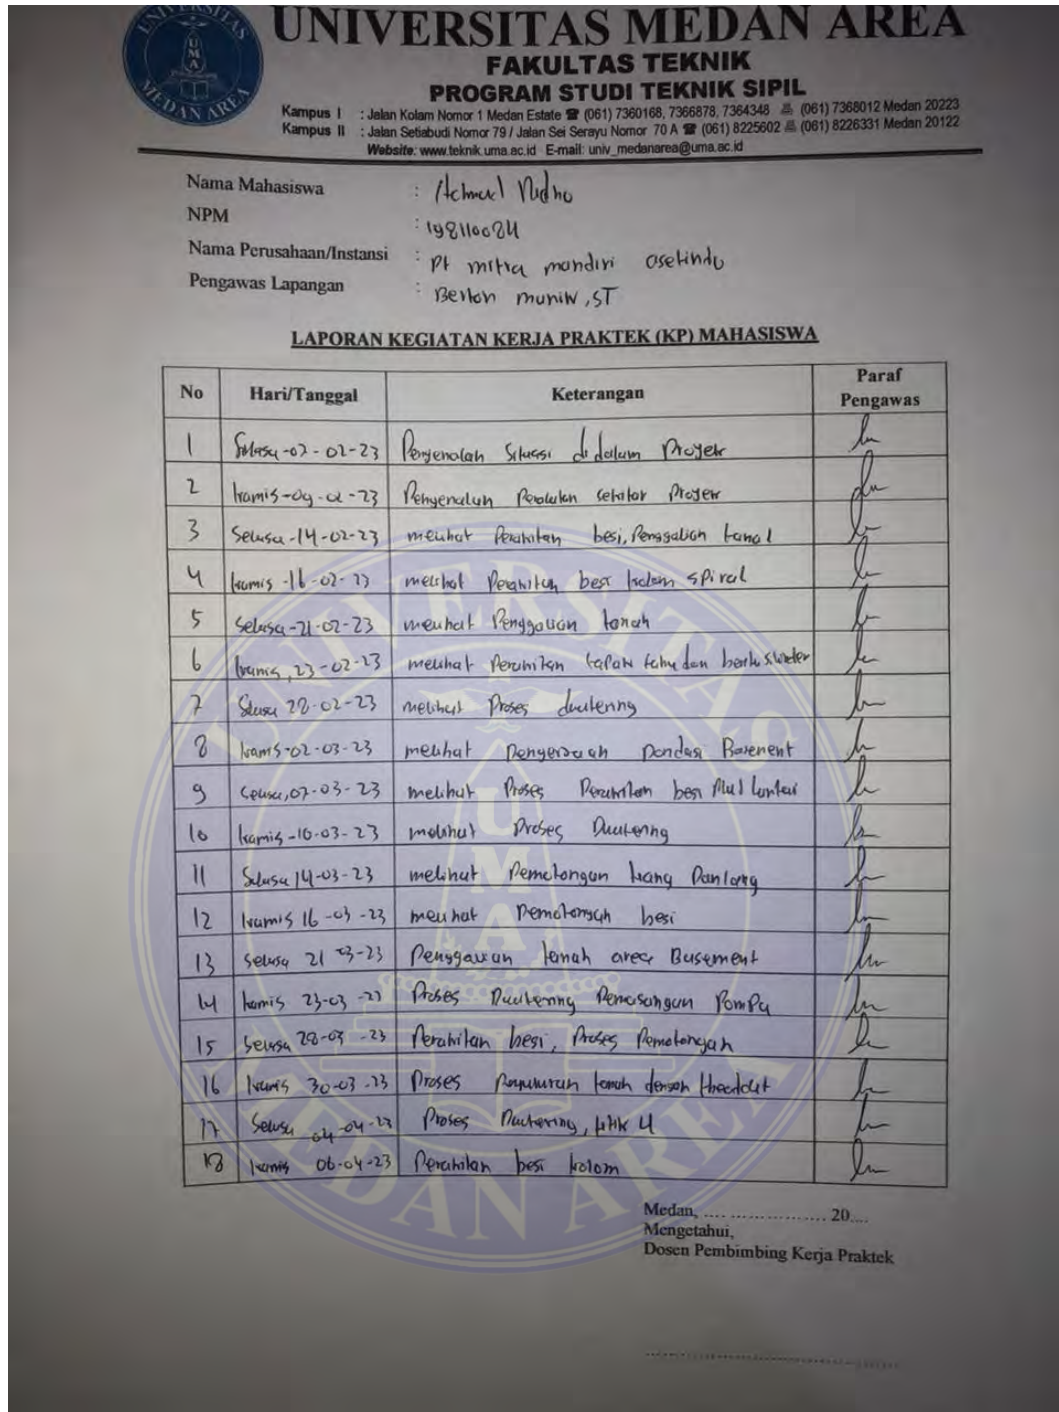 UNIVERSITAS MEDAN AREA
FAKULTAS TEKNIK
PROGRAM STUDI TEKNIK SIPIL
Kampus I : Jalan Kolam Nomor 1 Medan Estate ☎ (061) 7360168, 7366878, 7364348 (061) 7368012 Medan 20223
Kampus II : Jalan Setiabudi Nomor 79 / Jalan Sei Serayu Nomor 70 A ☎ (061) 8225602 (061) 8226331 Medan 20122
Website: www.teknik.uma.ac.id E-mail: univ_medanarea@uma.ac.id
UNIVERSITAS
UMA
MEDAN AREA
Nama Mahasiswa : Achmad Ridho
NPM : 198110084
Nama Perusahaan/Instansi : Pt mitra mandiri asetindo
Pengawas Lapangan : ST
LAPORAN KEGIATAN KERJA PRAKTEK (KP) MAHASISWA
No Hari/Tanggal Keterangan Paraf Pengawas
1 Selasa-07-02-23 Pengenalan Situasi di dalam Proyek
2 kamis-09-02-23 Pengenalan Peralatan sekitar Proyek
3 Selasa-14-02-23 melihat Perakitan besi, Penggalian tanah
4 kamis-16-02-23 melihat Perakitan besi kolom spiral
5 Selasa-21-02-23 melihat Penggalian tanah
6 kamis, 23-02-23 melihat Perakitan tapak
7 Selasa 28-02-23 melihat Proses
8 kamis-02-03-23 melihat pengerjaan pondasi Basement
9 Selasa, 07-03-23 melihat Proses Perakitan besi Plat Lantai
10 kamis-10-03-23 melihat Proses
11 Selasa 14-03-23 melihat Pemotongan tiang Pancang
12 kamis 16-03-23 melihat Pemotongan besi
13 Selasa 21-03-23 Penggalian tanah area Basement
14 kamis 23-03-23 Proses Pemasangan Pompa
15 Selasa 28-03-23 Perakitan besi, Proses Pemotongan
16 kamis 30-03-23 Proses Pengukuran tanah dengan
17 Selasa 04-04-23 Proses titik 4
18 kamis 06-04-23 Perakitan besi kolom
Medan, ........................ 20....
Mengetahui,
Dosen Pembimbing Kerja Praktek
UNIVERSITAS
UMA
MEDAN AREA